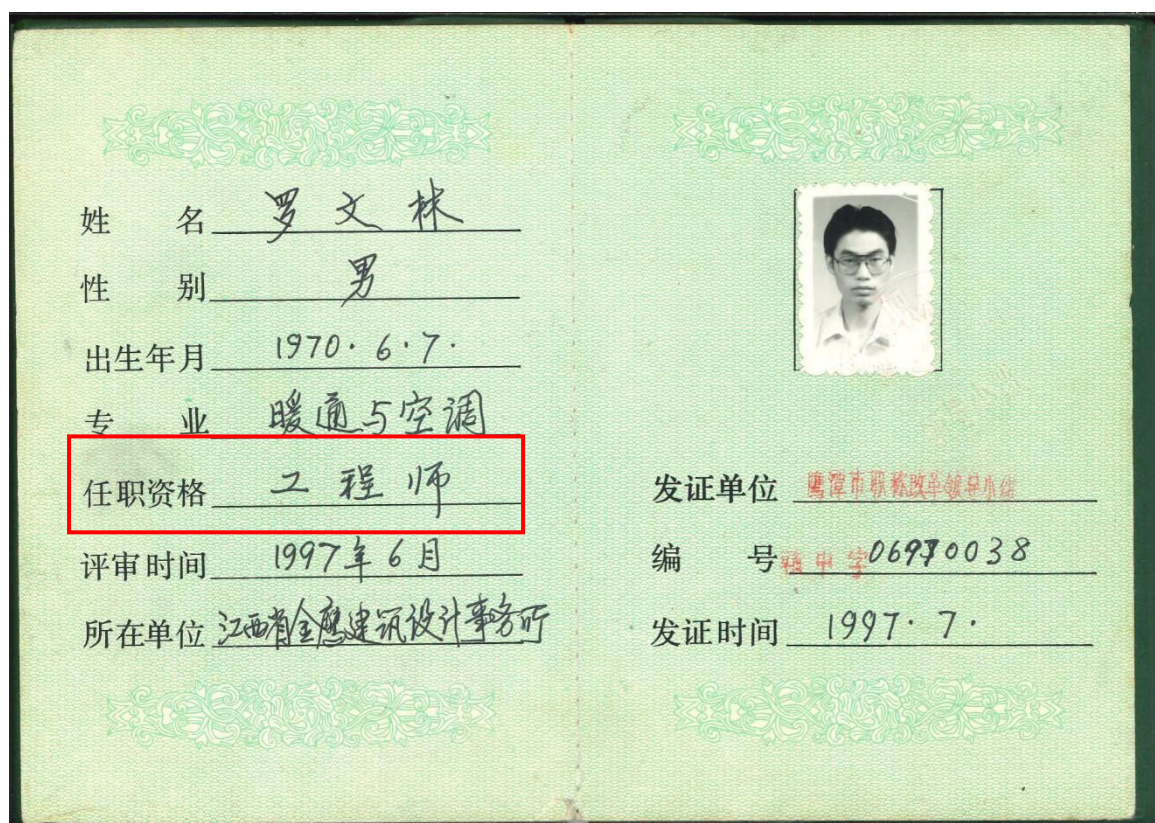 姓 名 罗文林
性 别 男
出生年月 1970.6.7.
专 业 暖通与空调
任职资格 工程师
评审时间 1997年6月
所在单位 江西省金鹰建筑设计事务所
发证单位 鹰潭市职称改革领导小组
编 号 中字06970038
发证时间 1997.7.